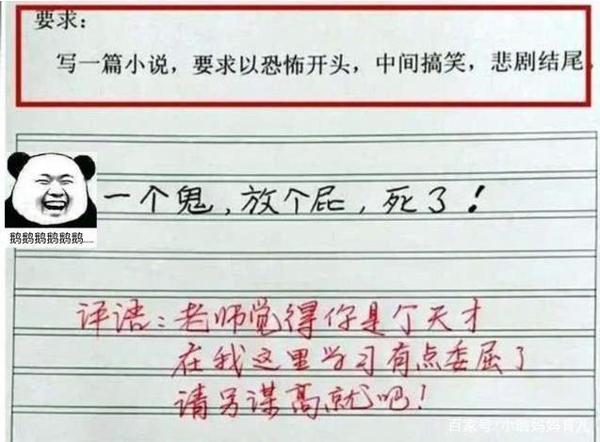 要求:
写一篇小说，要求以恐怖开头，中间搞笑，悲剧结尾，
一个鬼，放个屁，死了！
鹅鹅鹅鹅鹅鹅......
评语：老师觉得你是个天才
在我这里学习有点委屈了
请另谋高就吧！
百家号/小暄妈妈育儿